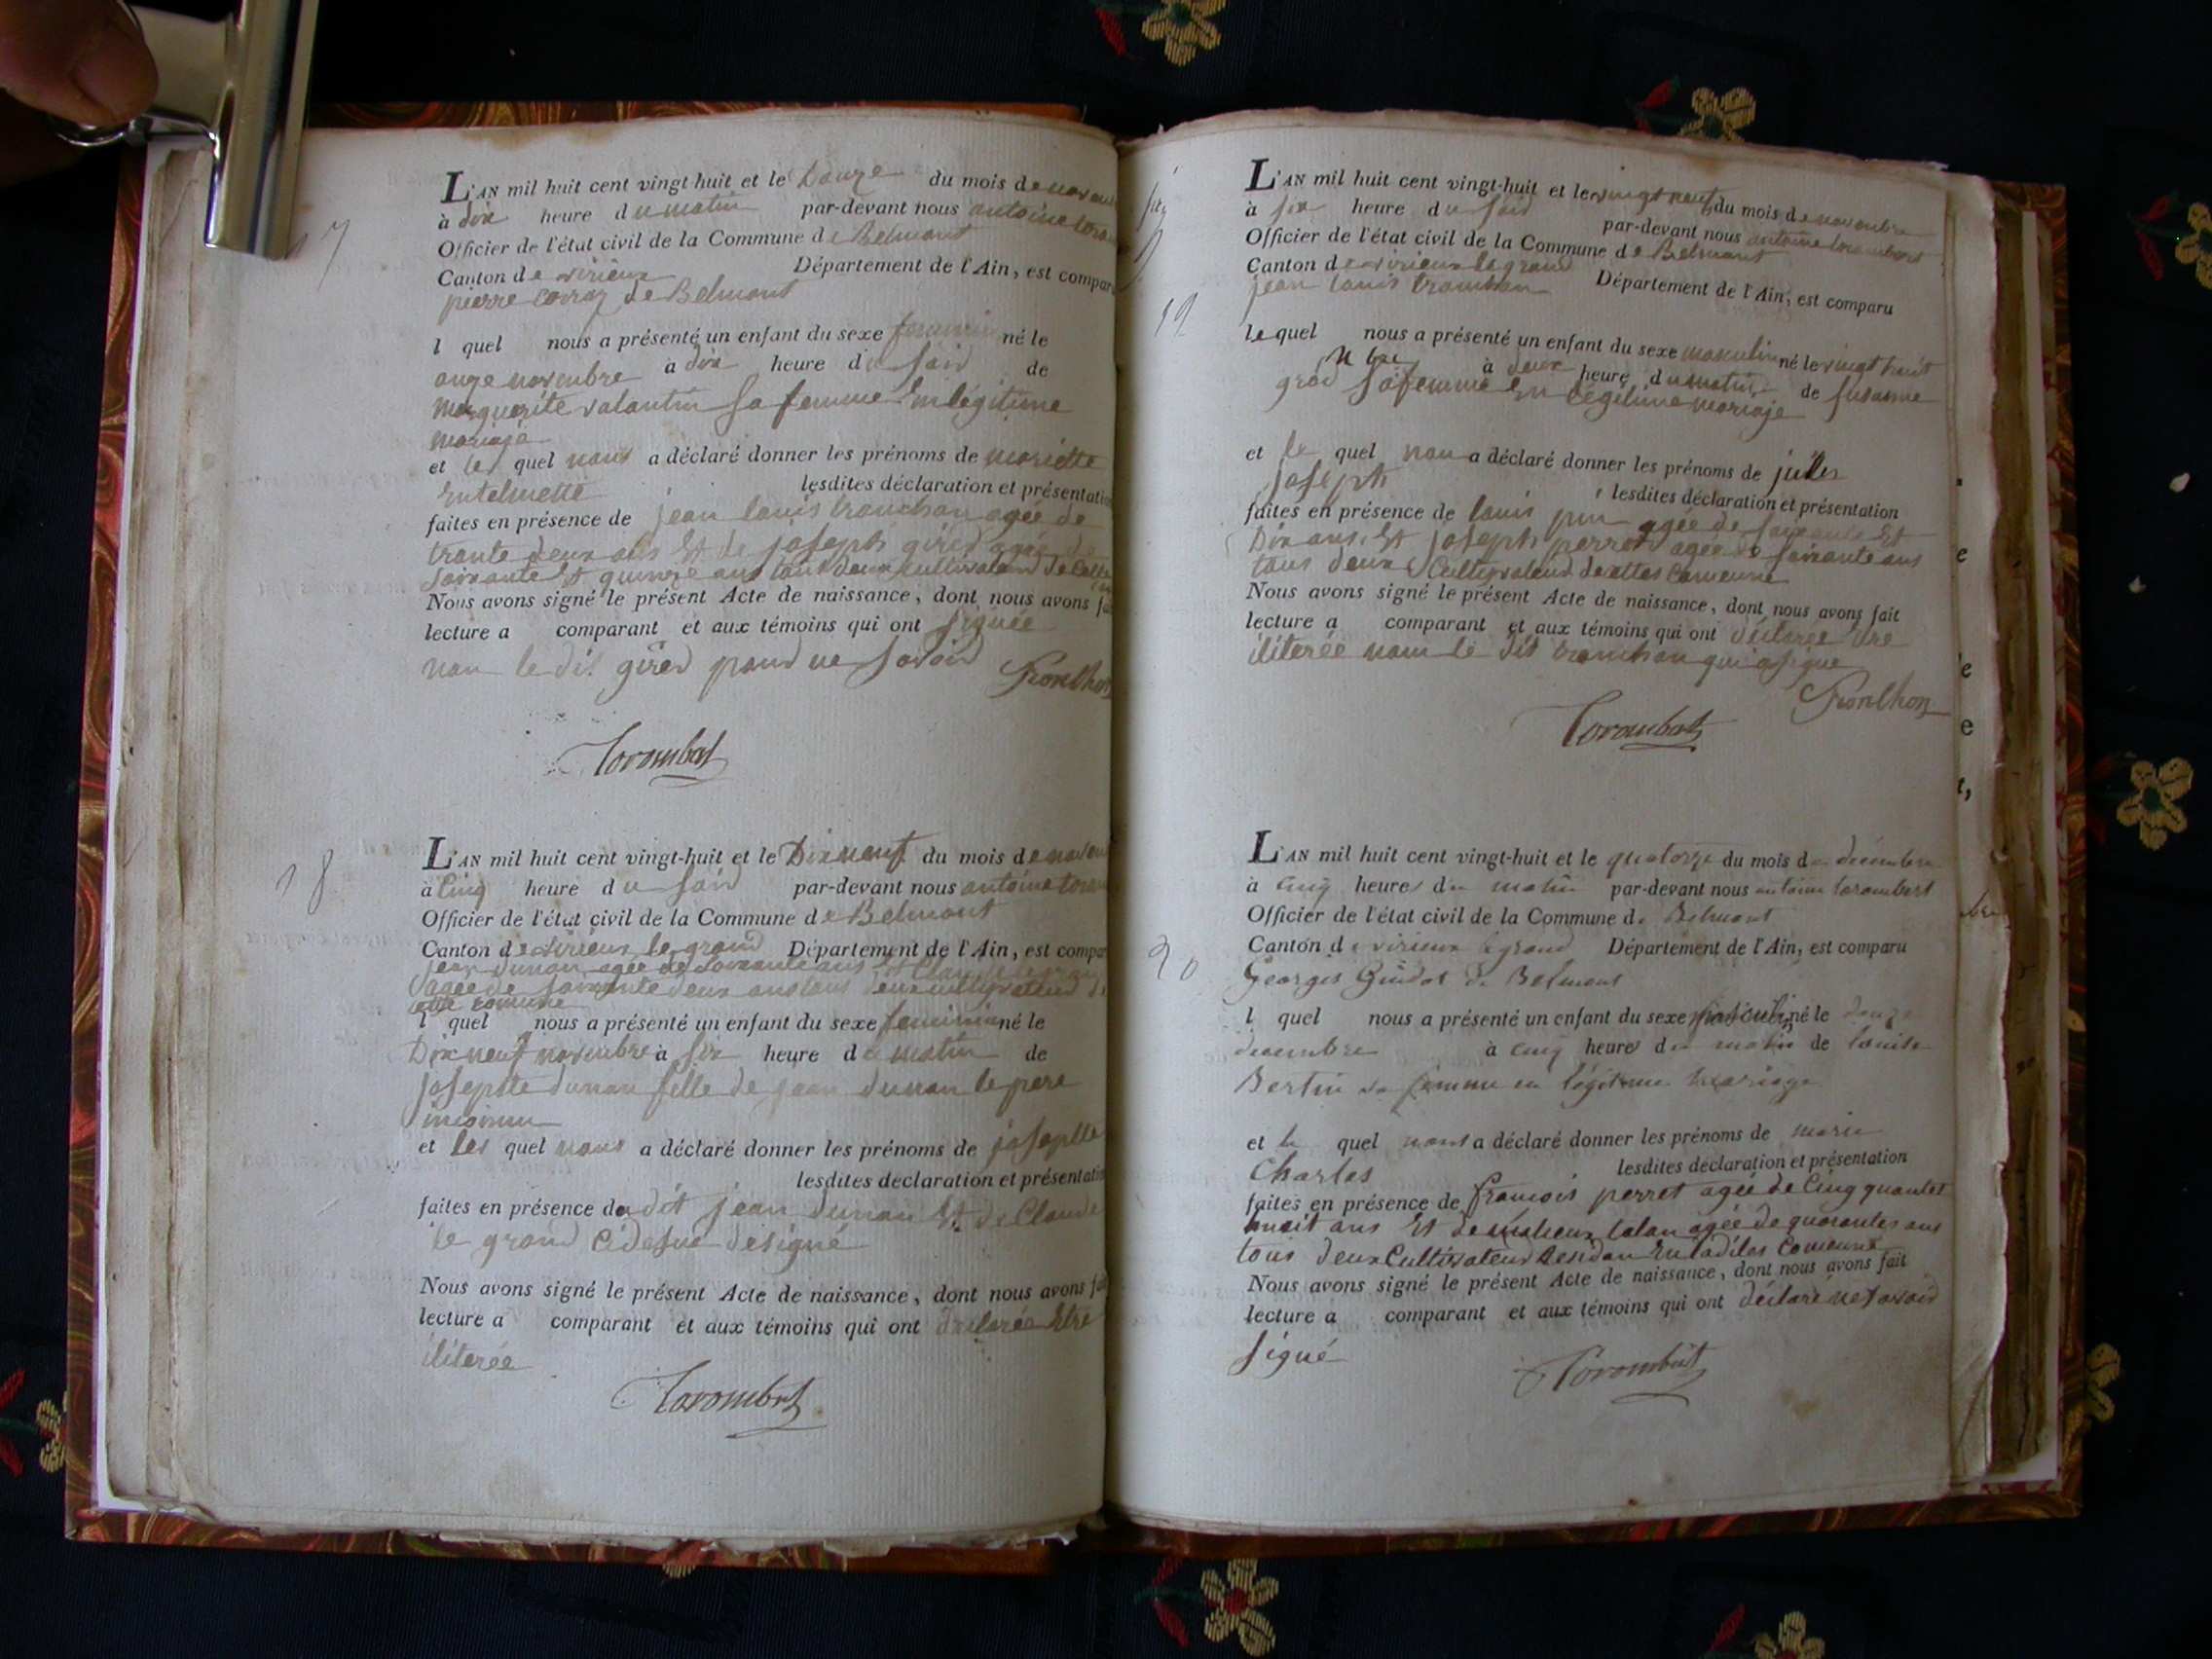 17
L'AN mil huit cent vingt-huit et le Douze du mois de novem
à dix heure du matin par-devant nous antoine toro
Officier de l'état civil de la Commune de Belmont
Canton de virieux Département de l'Ain, est compar
pierre Corroz de Belmont
l quel nous a présenté un enfant du sexe feminin né le
onze novembre à dix heure du soir de
Marguerite valantin sa femme En légitime
mariage
et les quel nous a déclaré donner les prénoms de mariette
lesdites déclaration et présentation
faites en présence de jean louis tronchon agée de
trante deux ans Et de joseph gired agée de
soixante Et quinze ans tous deux Cultivateur de Cette
Nous avons signé le présent Acte de naissance, dont nous avons fai
lecture a comparant et aux témoins qui ont signée
non le dit gired pour ne savoir
Tronchon
Torombert
18
L'AN mil huit cent vingt-huit et le Dixneuf du mois de novem
à Cinq heure du soir par-devant nous antoine toro
Officier de l'état civil de la Commune de Belmont
Canton de virieux le grand Département de l'Ain, est compar
jean dunan agée de soixante ans Et Claude le gran
agée de soixante deux ans tous deux cultivateur de
cette comune
l quel nous a présenté un enfant du sexe feminin né le
Dixneuf novembre à six heure du matin de
josephte dunan fille de jean dunan le pere
inconnu
et les quel nous a déclaré donner les prénoms de josephte
lesdites declaration et présentation
faites en présence du dit jean dunan Et de Claude
le grand Cidesus designé
Nous avons signé le présent Acte de naissance, dont nous avons fai
lecture a comparant et aux témoins qui ont déclarée Etre
iliterée
Torombert
19
L'AN mil huit cent vingt-huit et le vingt neuf du mois de novembre
à six heure du soir par-devant nous antoine torombert
Officier de l'état civil de la Commune de Belmont
Canton de virieux le grand Département de l'Ain, est comparu
jean louis tronchon
le quel nous a présenté un enfant du sexe masculin né le vingt huit
9bre à deux heure du matin de susanne
sa femme En légitime mariage
et le quel nou a déclaré donner les prénoms de jules
joseph lesdites déclaration et présentation
faites en présence de louis pin agée de soixante Et
Dix ans Et joseph perret agée de soixante ans
tous deux Cultivateur de cette comeune
Nous avons signé le présent Acte de naissance, dont nous avons fait
lecture a comparant et aux témoins qui ont déclarée Etre
iliterée non le dit tronchon qui a signe
Tronchon
Torombert
20
L'AN mil huit cent vingt-huit et le quatorze du mois de décembre
à cinq heures du matin par-devant nous antoine torombert
Officier de l'état civil de la Commune de Belmont
Canton de virieux le grand Département de l'Ain, est comparu
Georges Guidot de Belmont
l quel nous a présenté un enfant du sexe masculin né le douze
decembre à cinq heures du matin de louise
Bertin sa femme en légitime mariage
et le quel nous a déclaré donner les prénoms de marie
Charles lesdites déclaration et présentation
faites en présence de francois perret agée de Cinq quantet
huit ans Et de matieux talan agée de quarantes ans
tous deux Cultivateur Residan En ladites Comeune
Nous avons signé le présent Acte de naissance, dont nous avons fait
lecture a comparant et aux témoins qui ont déclaré ne savoir
signé
Torombert